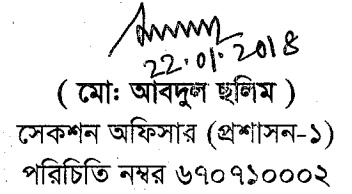 22.01.2018
( মোঃ আবদুল ছলিম )
সেকশন অফিসার (প্রশাসন-১)
পরিচিতি নম্বর ৬৭০৭১০০০২